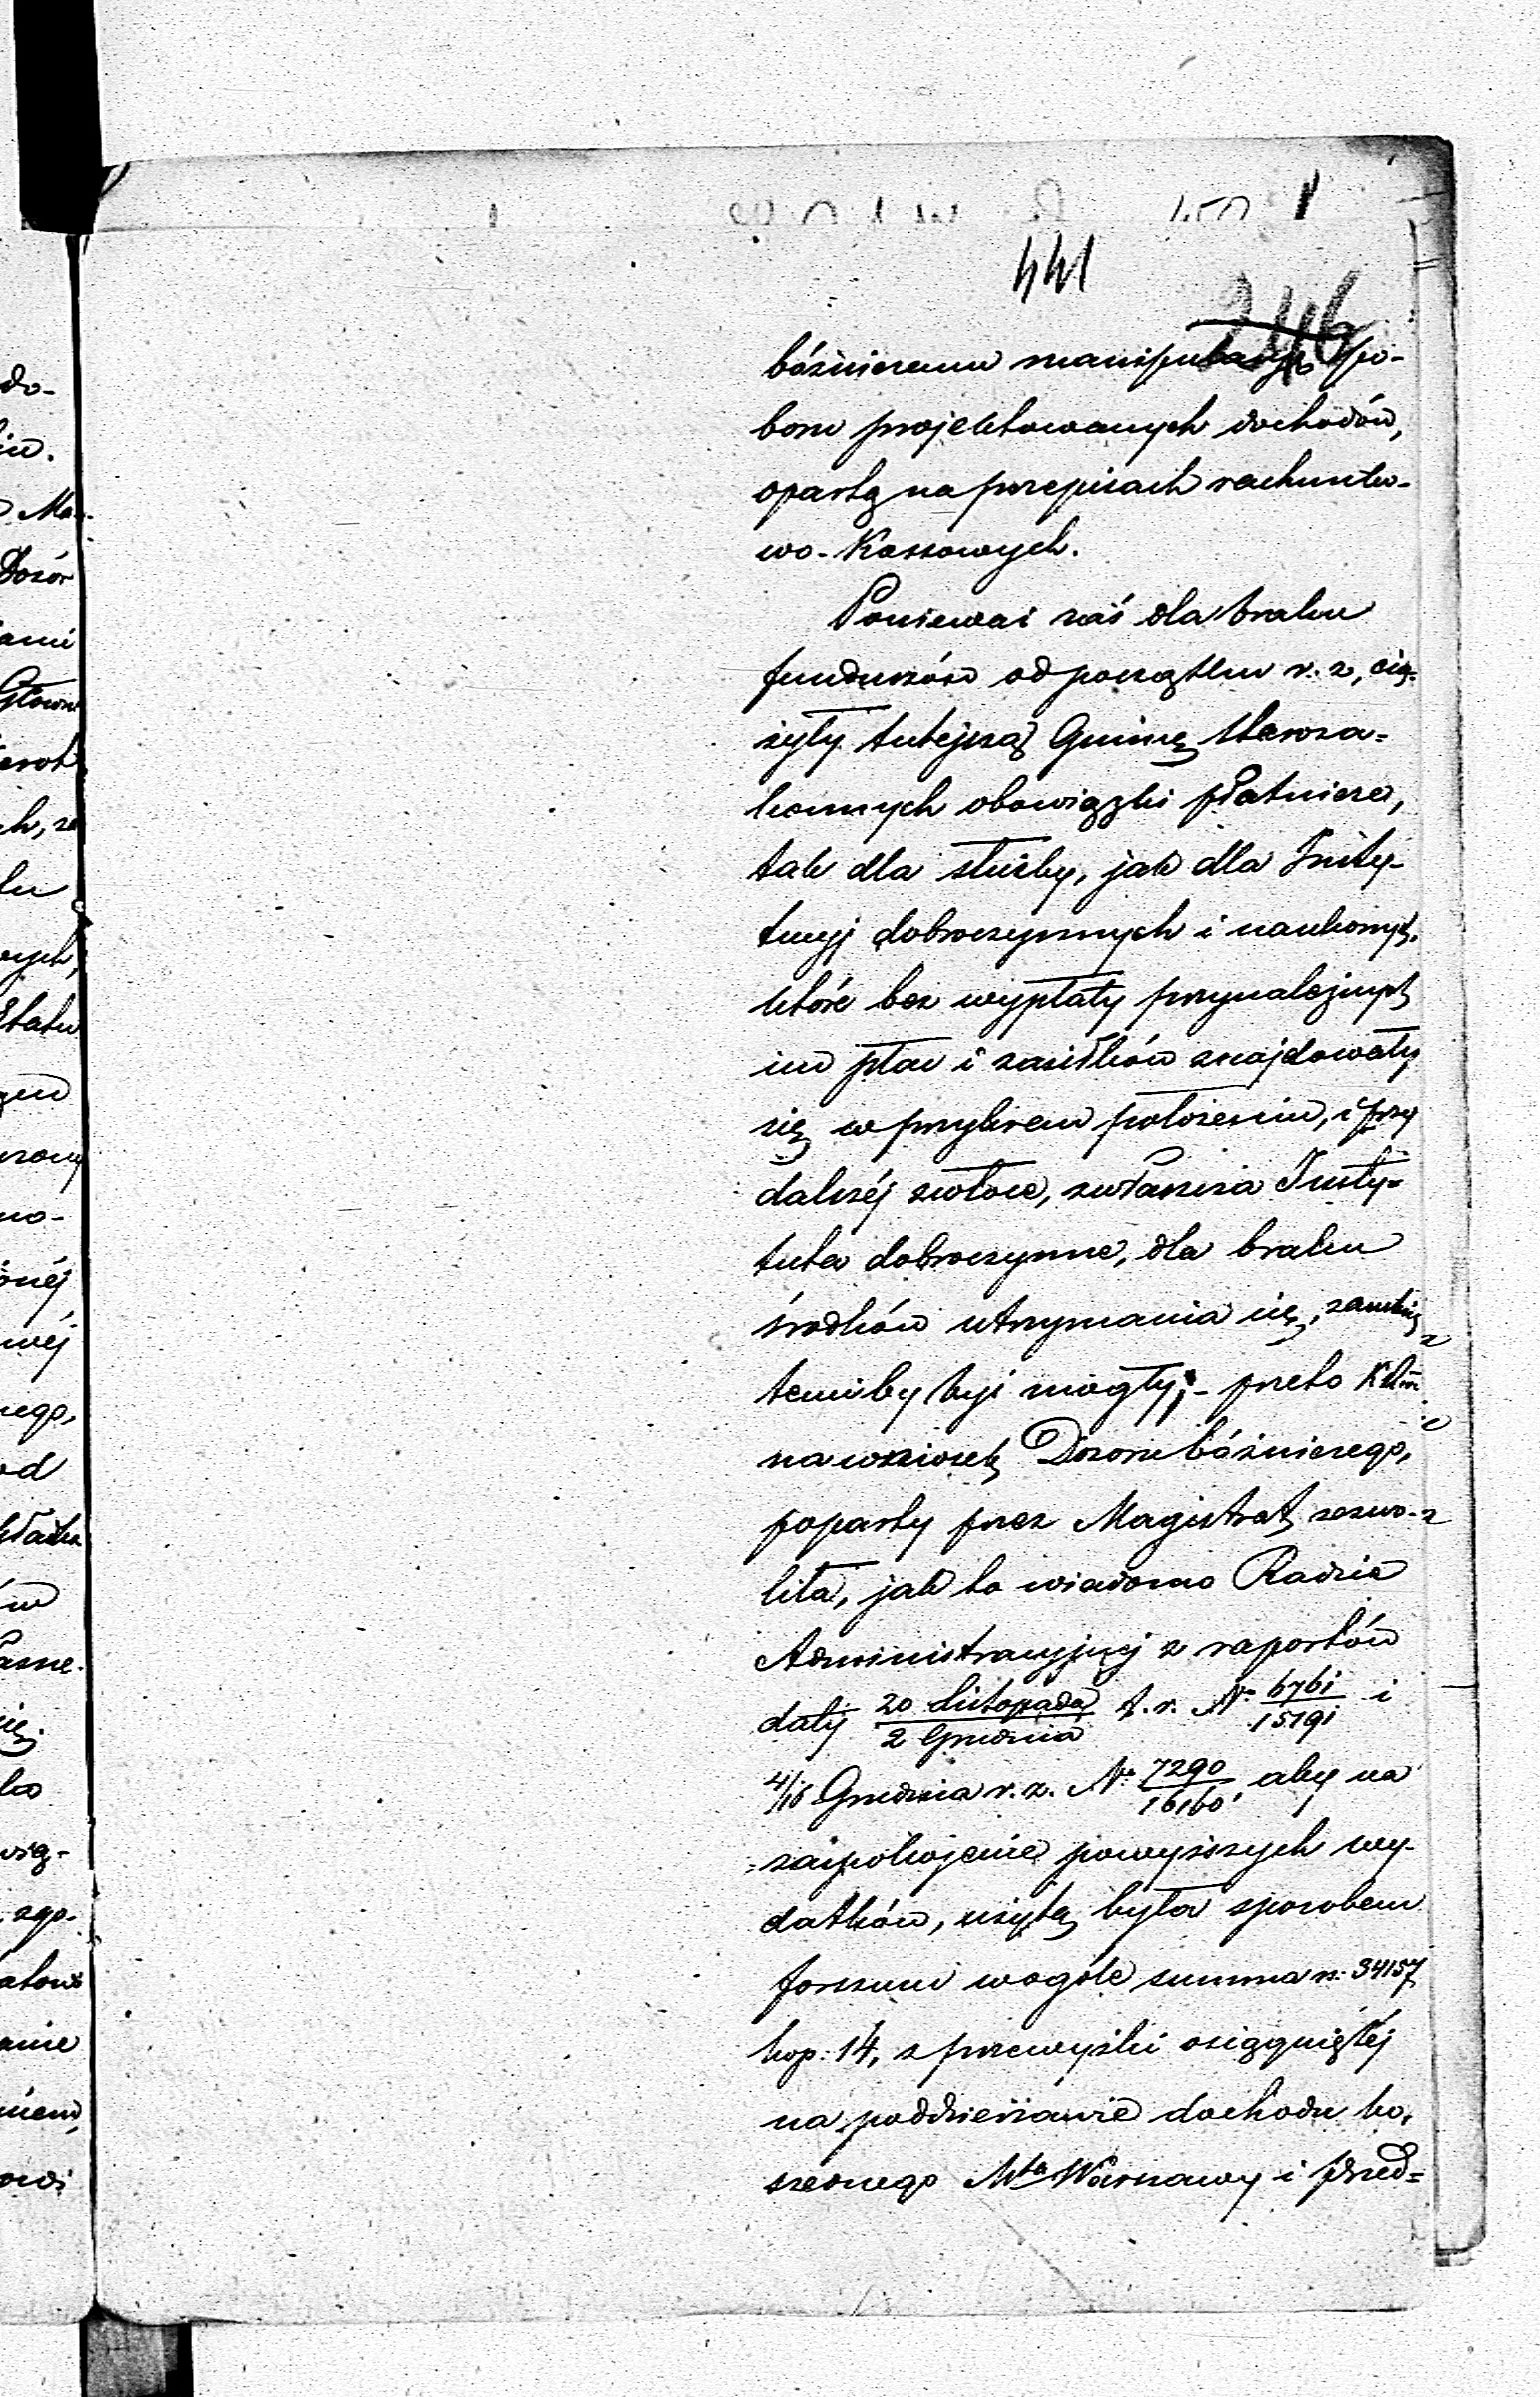 441
246
bóżniczemu manipulacyą po-
boru projektowanych dochodów,
opartą na przepisach rachunko-
wo-Kassowych.
Ponieważ zaś dla braku
funduszów od początku r. z, cią-
żyły tutejszą Gminę Staroza-
konnych obowiązki płatnicze,
tak dla służby, jak dla Insty-
tucyj dobroczynnych i naukowych,
które bez wypłaty przynależnych
im płac i zasiłków znajdowały
się w przykrem położeniu, i przy
dalszéj zwłoce, zwłaszcza Insty-
tuta dobroczynne, dla braku
środków utrzymania się, zamknię
temiby być mogły; - przeto
na wniosek Dozoru bóżniczego,
poparty przez Magistrat zezwo-
liła, jak to wiadomo Radzie
Administracyjnej z raportów
daty 20 Listopada / 2 Grudnia t. r. No 6761 / 15191 i
4/16 Grudnia r. z. No 7290 / 16160 aby na
zaspokojenie powyższych wy-
datków, użytą była sposobem
forszusu wogóle summa rs: 34157
kop: 14, z przewyżki osiągniętéj
na poddzierżawie dochodu ko-
szernego Mta Warszawy i Przed-
do-
Dozór
Główn
Etatu
nego,
od